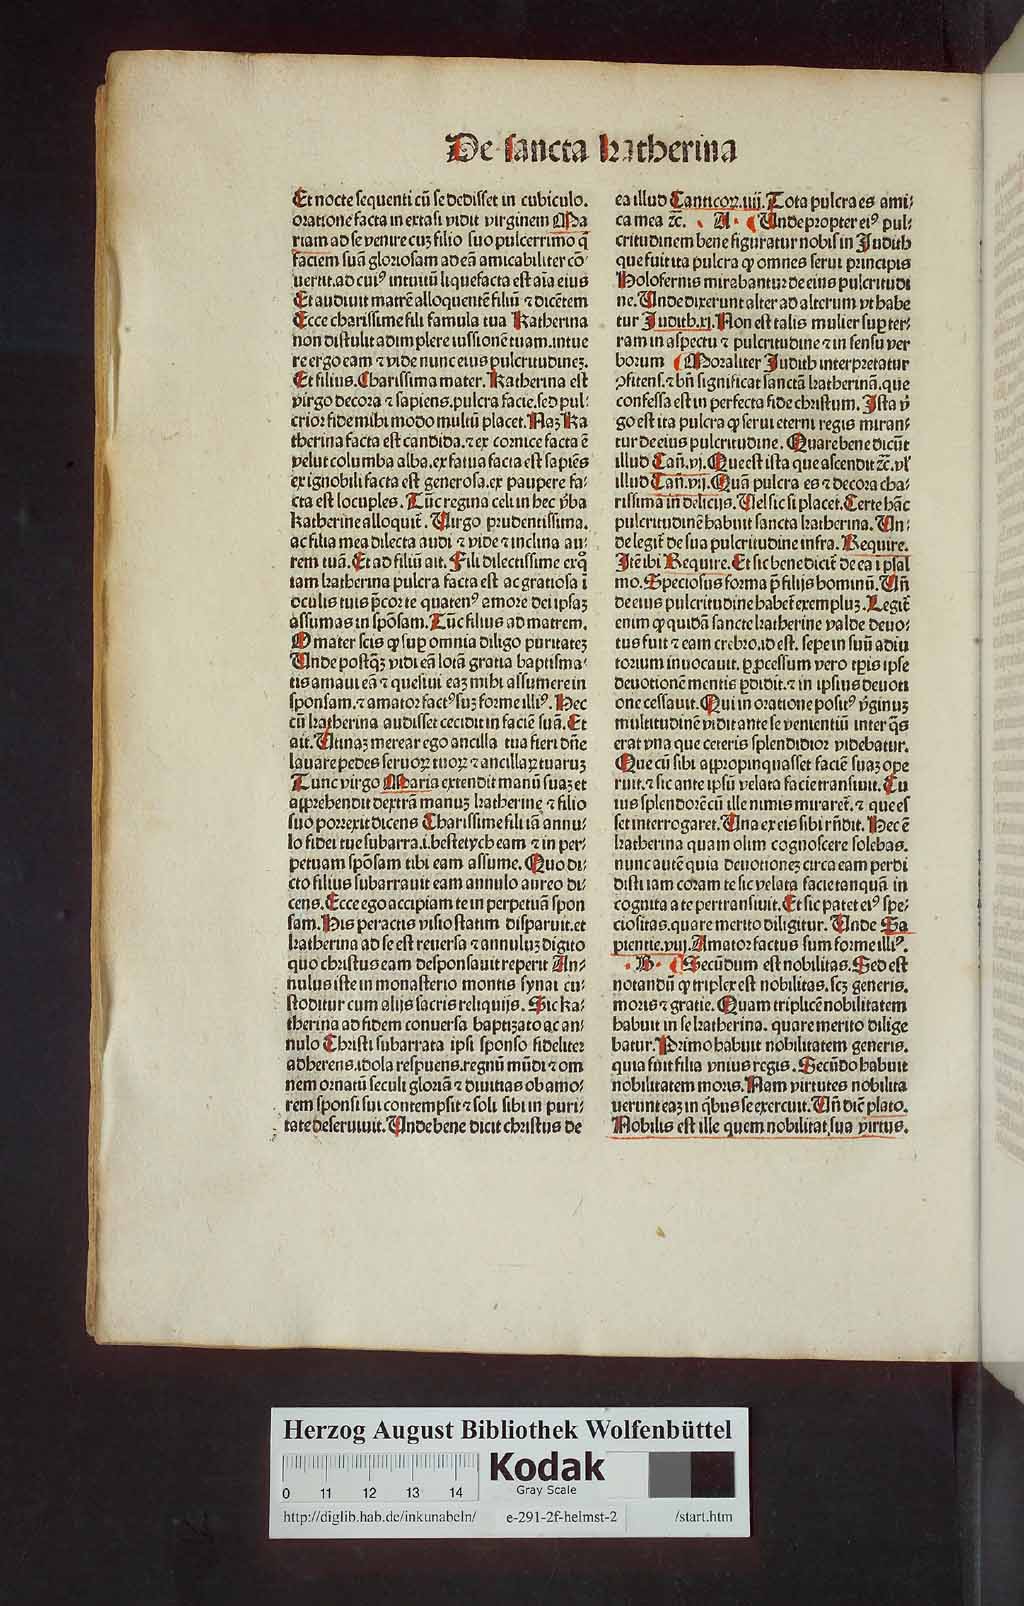 De sancta katherina
Et nocte sequenti cū se dedisset in cubiculo.
oratione facta in extasi vidit virginem Ma
riam ad se venire cuȝ filio suo pulcerrimo q̄
faciem suā gloriosam ad eā amicabiliter cō
uertit. ad cuiꝰ intuitū liquefacta est aīa eius
Et audiuit matrē alloquentē filiū ⁊ dicētem
Ecce charissime fili famula tua Katherina
non distulit adimplere iussionē tuam. intue
re ergo eam ⁊ vide nunc eius pulcritudineȝ.
Et filius. Charissima mater. Katherina est
virgo decora ⁊ sapiens. pulcra facie. sed pul⸗
crior fide mihi modo multū placet. Naȝ Ka
therina facta est candida. ⁊ ex cornice facta ē
velut columba alba. ex fatua facta est sapiēs
ex ignobili facta est generosa. ex paupere fa⸗
cta est locuples. Tūc regina celi in hec v̄ba
katherine alloquit̄. Virgo prudentissima.
ac filia mea dilecta audi ⁊ vide ⁊ inclina au⸗
rem tuā. Et ad filiū ait. Fili dilectissime exq̊
iam katherina pulcra facta est ac gratiosa ī
oculis tuis p̄cor te quatenꝰ amore dei ipsaȝ
assumas in spōsam. Tūc filius ad matrem.
O mater scis ꝙ suꝑ omnia diligo puritateȝ
Unde postq̄ȝ vidi eā lotā gratia baptisma⸗
tis amaui eā ⁊ quesiui eaȝ mihi assumere in
sponsam. ⁊ amator factꝰ suȝ forme illiꝰ. Hec
cū katherina audisset cecidit in faciē suā. Et
ait. Utinaȝ merear ego ancilla tua fieri dn̄e
lauare pedes seruoꝝ tuoꝝ ⁊ ancillaꝝ tuaruȝ
Tunc virgo Maria extendit manū suaȝ et
apprehendit dextrā manuȝ katherine ⁊ filio
suo porrexit dicens Charissime fili iā annu⸗
lo fidei tue subarra. i. bestetych eam ⁊ in per⸗
petuam spōsam tibi eam assume. Quo di⸗
cto filius subarrauit eam annulo aureo di⸗
cens. Ecce ego accipiam te in perpetuā spon
sam. His peractis visio statim disparuit. et
katherina ad se est reuersa ⁊ annuluȝ digito
quo christus eam desponsauit reperit An⸗
nulus iste in monasterio montis synai cu⸗
stoditur cum alijs sacris reliquijs. Sic ka⸗
therina ad fidem conuersa baptizato ac an⸗
nulo Christi subarrata ipsi sponso fideliter
adherens. idola respuens. regnū mūdi ⁊ om
nem ornatū seculi gloriā ⁊ diuitias ob amo⸗
rem sponsi sui contempsit ⁊ soli sibi in puri⸗
tate deseruiuit. Unde bene dicit christus de
ea illud Canticoꝝ. iiij. Tota pulcra es ami⸗
ca mea ⁊c. A. Unde propter eiꝰ pul⸗
critudinem bene figuratur nobis in Judith
que fuit ita pulcra ꝙ omnes serui principis
Holofernis mirabantur de eius pulcritudi
ne. Unde dixerunt alter ad alterum vt habe
tur Judith. xj. Non est talis mulier suꝑ ter⸗
ram in aspectu ⁊ pulcritudine ⁊ in sensu ver
borum Moraliter Judith interpretatur
ꝯfitens. ⁊ bn̄ significat sanctā katherinā. que
confessa est in perfecta fide christum. Ista v̄
go est ita pulcra ꝙ serui eterni regis miran⸗
tur de eius pulcritudine. Quare bene dicūt
illud Cañ. vj. Que est ista que ascendit ⁊c. vl̄
illud Cañ. vij. Quā pulcra es ⁊ decora cha⸗
rissima in delicijs. Vel sic si placet. Certe hāc
pulcritudinē habuit sancta katherina. Un⸗
de legit̄ de sua pulcritudine infra. Require.
Itē ibi Require. Et sic bene dicit̄ de ea ī psal
mo. Speciosus forma p̄ filijs hominū. Uñ
de eius pulcritudine habet̄ exempluȝ. Legit̄
enim ꝙ quidā sancte katherine valde deuo⸗
tus fuit ⁊ eam crebro. id est. sepe in suū adiu
torium inuocauit. ꝓ processum vero tp̄is ipse
deuotionē mentis ꝑdidit. ⁊ in ipsius deuoti
one cessauit. Qui in oratione positꝰ v̄ginuȝ
multitudinē vidit ante se venientiū inter q̄s
erat vna que ceteris splendidior videbatur.
Que cū sibi appropinquasset faciē suaȝ ope
ruit. ⁊ sic ante ipsū velata facie transiuit. Cu
ius splendorē cū ille nimis miraret̄. ⁊ que es
set interrogaret. Una ex eis sibi rn̄dit. Hec ē
katherina quam olim cognoscere solebas.
nunc autē quia deuotioneȝ circa eam perdi
disti iam coram te sic velata facie tanquā in
cognita a te pertransiuit. Et sic patet eiꝰ spe⸗
ciositas. quare merito diligitur. Unde Sa
pientie. viij. Amator factus sum forme illiꝰ.
B. Secūdum est nobilitas. Sed est
notandū ꝙ triplex est nobilitas. scȝ generis.
moris ⁊ gratie. Quam triplicē nobilitatem
habuit in se katherina. quare merito dilige
batur. Primo habuit nobilitatem generis.
quia fuit filia vnius regis. Secūdo habuit
nobilitatem moris. Nam virtutes nobilita
uerunt eaȝ in q̄bus se exercuit. Uñ dic̄ plato.
Nobilis est ille quem nobilitat sua virtus.
Herzog August Bibliothek Wolfenbüttel
0 11 12 13 14
Kodak
Gray Scale
http://diglib.hab.de/inkunabeln/ e-291-2f-helmst-2 /start.htm